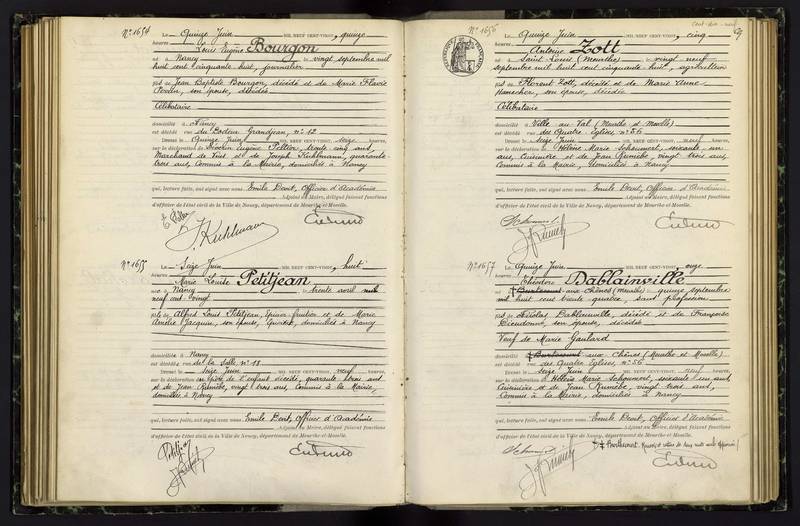 N° 1654 Le Quinze Juin MIL NEUF CENT-VINGT, quinze
heures, Louis Eugène Bourgon
né à Nancy le vingt septembre mil
huit cent cinquante huit, journalier
fils de Jean Baptiste Bourgon, décédé et de Marie Flavie
son épouse, décédée
Célibataire
domicilié à Nancy
est décédé rue du Docteur Grandjean, n° 12
Dressé le Quinze Juin, seize heures,
sur la déclaration de Eugène Peltier, trente cinq ans,
Marchand de Vins et de Joseph Kuhlmann, quarante
trois ans, Commis à la Mairie, domiciliés à Nancy
qui, lecture faite, ont signé avec nous Emile Devit, Officier d'Académie
Adjoint au Maire, délégué faisant fonctions
d'officier de l'état civil de la Ville de Nancy, département de Meurthe-et-Moselle.
J. Kuhlmann
N° 1655 Le Seize Juin MIL NEUF CENT-VINGT, huit
heures, Marie Louise Petitjean
née à Nancy le trente avril mil
neuf cent vingt
fille de Alfred Louis Petitjean, épicier fruitier et de Marie
Amélie Jacquin, son épouse, domiciliés à Nancy
domiciliée à Nancy
est décédée rue de la Salle n° 18
Dressé le seize Juin, neuf heures,
sur la déclaration du père de l'enfant décédé, quarante trois ans
et de Jean Rumebe, vingt trois ans, Commis à la Mairie,
domiciliés à Nancy
qui, lecture faite, ont signé avec nous Emile Devit, Officier d'Académie
Adjoint au Maire, délégué faisant fonctions
d'officier de l'état civil de la Ville de Nancy, département de Meurthe-et-Moselle.
Petitjean
N° 1656 Le Quinze Juin MIL NEUF CENT-VINGT, cinq
heures, Antoine Zott
né à Saint Louis (Meurthe) le vingt neuf
septembre mil huit cent cinquante huit, agriculteur
fils de Florent Zott, décédé et de Marie Anne
son épouse, décédée
Célibataire
domicilié à Ville au Val (Meurthe et Moselle)
est décédé rue des Quatre Eglises, n° 56
Dressé le seize Juin, neuf heures,
sur la déclaration de Hélène Marie Schouvert, soixante un
ans, Cuisinière et de Jean Rumebe, vingt trois ans,
Commis à la Mairie, domiciliés à Nancy
qui, lecture faite, ont signé avec nous Emile Devit, Officier d'Académie
Adjoint au Maire, délégué faisant fonctions
d'officier de l'état civil de la Ville de Nancy, département de Meurthe-et-Moselle.
N° 1657 Le Quinze Juin MIL NEUF CENT-VINGT, onze
heures, Théodore Dablainville
né à aux Chênes (Meurthe) quinze septembre
mil huit cent trente quatre, sans profession
fils de Nicolas Dablainville, décédé et de Françoise
Dieudonné, son épouse, décédée
Veuf de Marie Gaulard
domicilié à aux Chênes (Meurthe et Moselle)
est décédé rue des Quatre Eglises, n° 56
Dressé le seize Juin, neuf heures,
sur la déclaration de Hélène Marie Schouvert, soixante un ans,
Cuisinière et de Jean Rumebe, vingt trois ans,
Commis à la Mairie, domiciliés à Nancy
qui, lecture faite, ont signé avec nous Emile Devit, Officier d'Académie
Adjoint au Maire, délégué faisant fonctions
d'officier de l'état civil de la Ville de Nancy, département de Meurthe-et-Moselle.